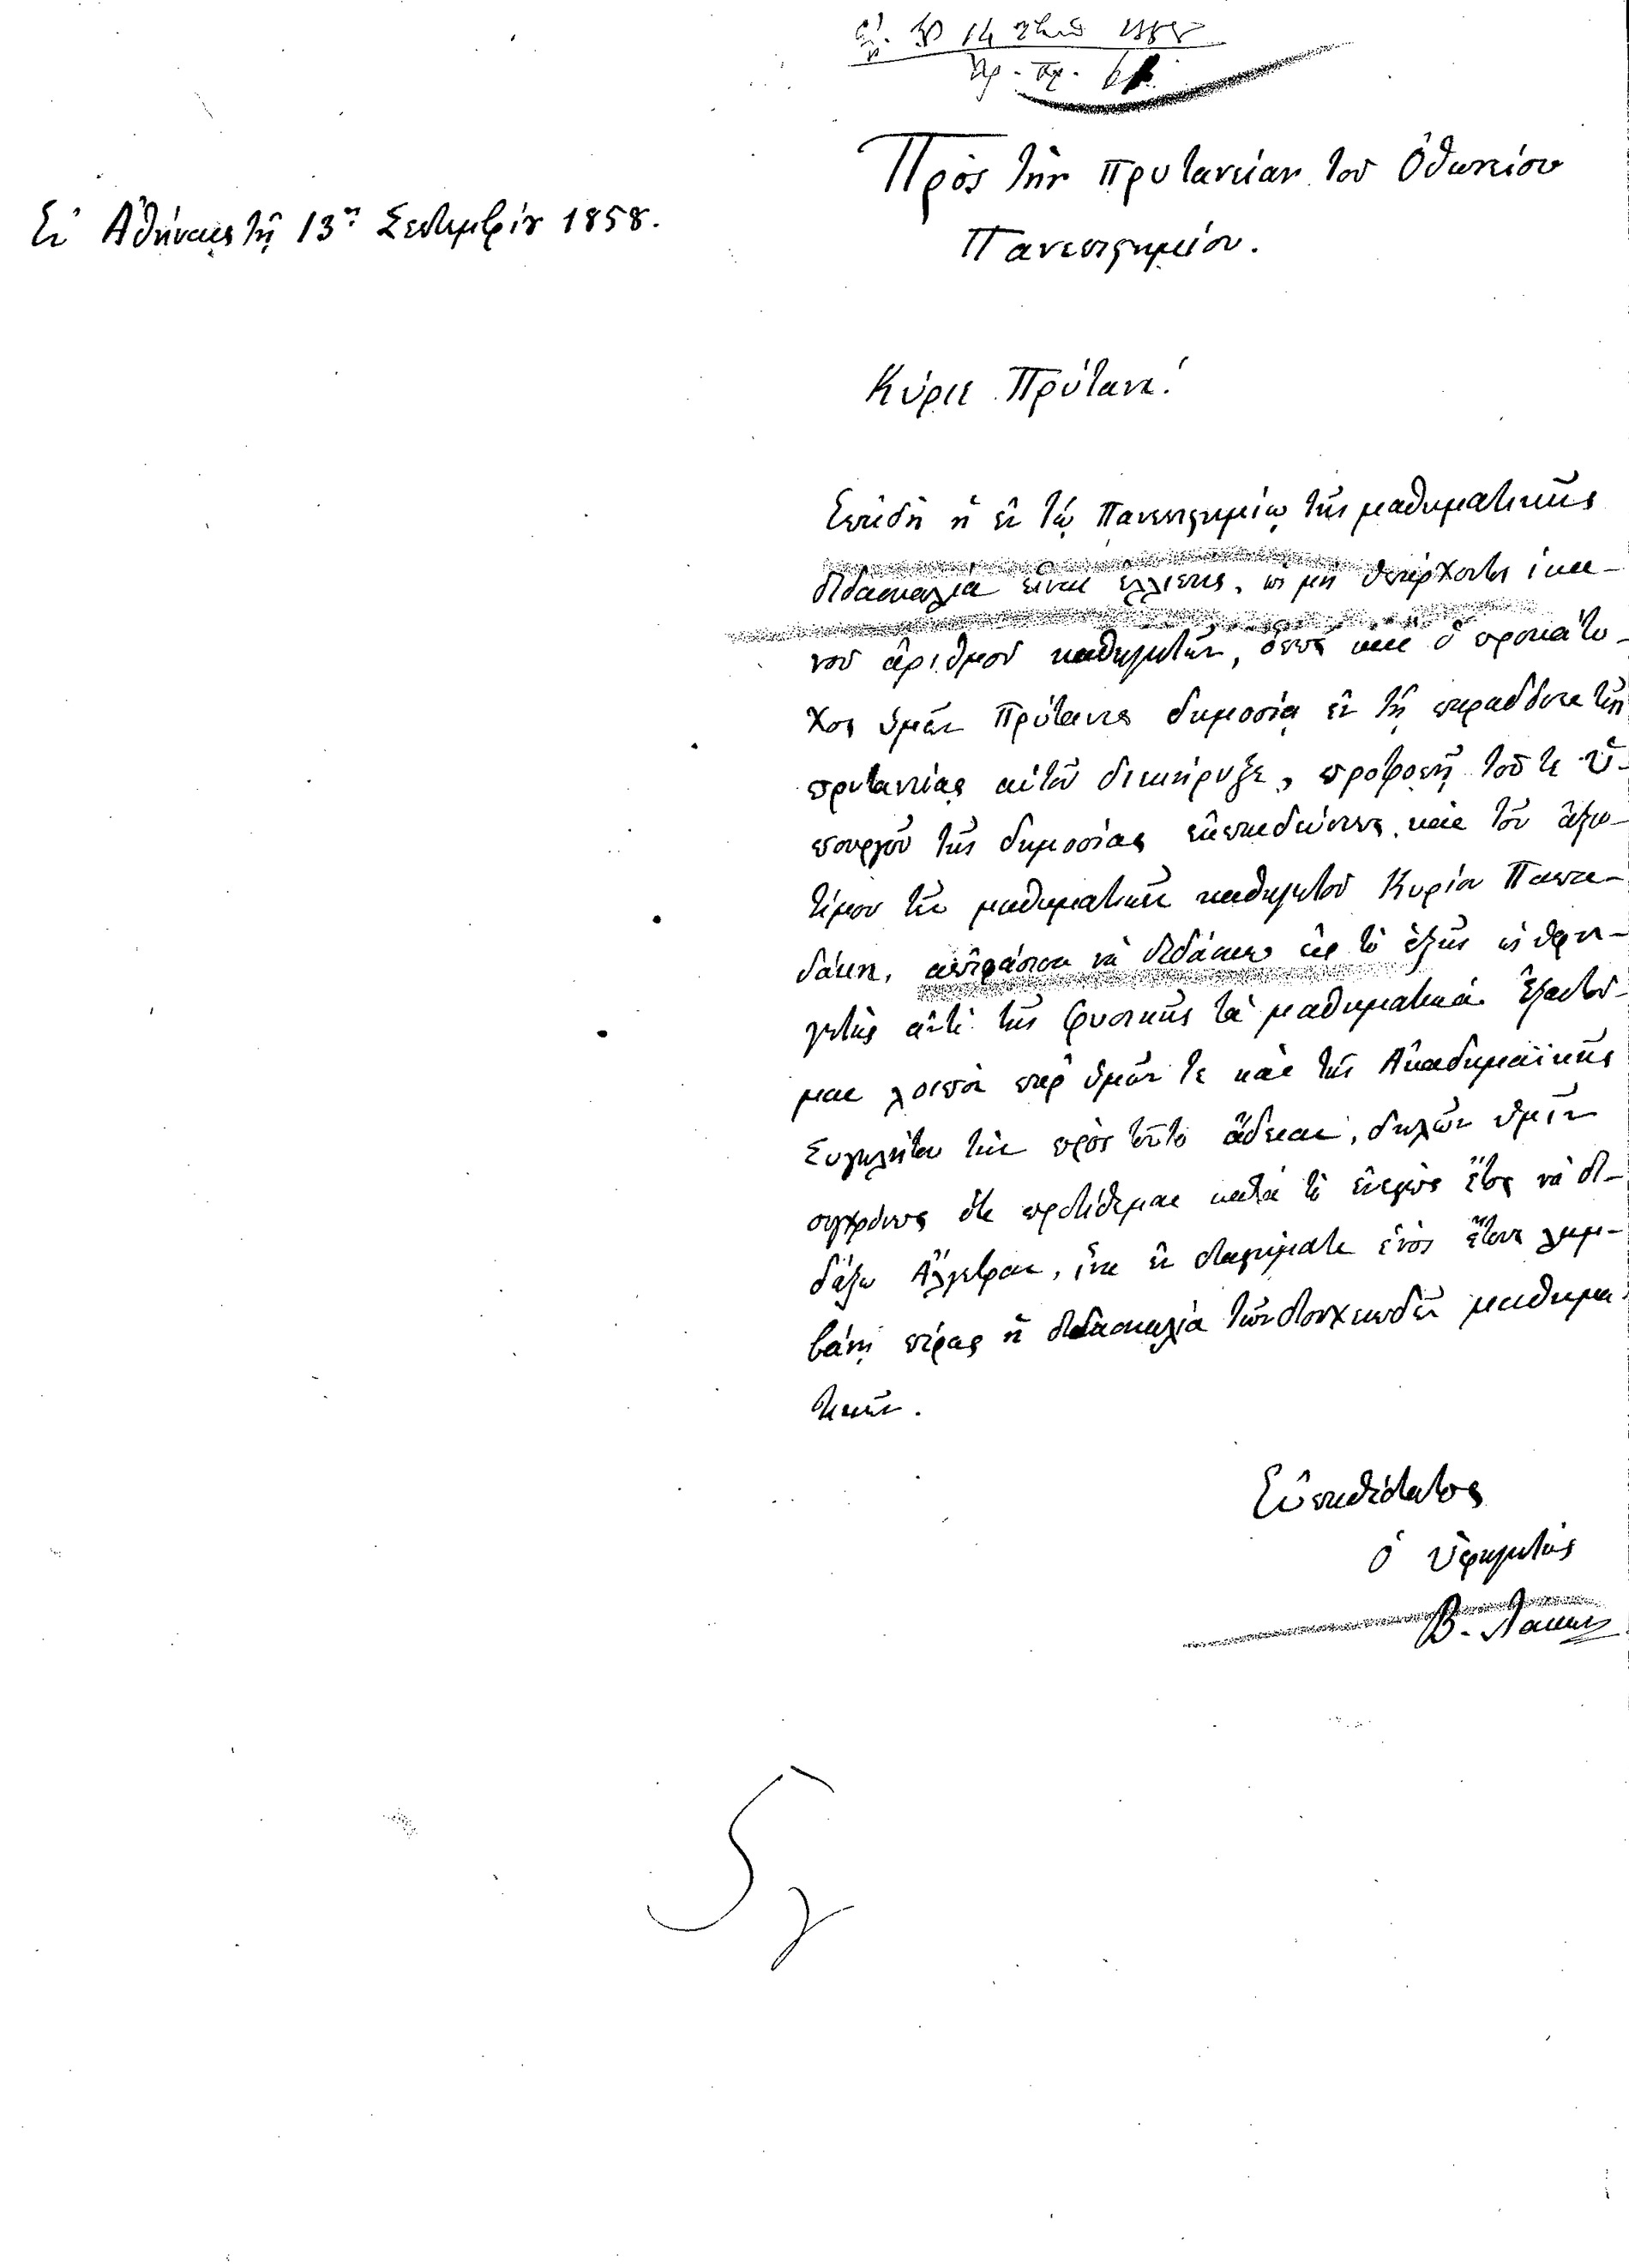 14 1858
Ἀρ. Πρ.
Ἐν Ἀθήναις τῇ 13ῃ Σεπτεμβρίου 1858.
Πρὸς τὴν Πρυτανείαν τοῦ Ὀθωνείου
Πανεπιστημίου.
Κύριε Πρύτανι!
Ἐπειδὴ ἡ ἐν τῷ Πανεπιστημίῳ τῆς μαθηματικῆς
διδασκαλία εἶναι ἐλλιπὴς, ὡς μὴ ὑπάρχοντος ἱκα-
νοῦ ἀριθμοῦ καθηγητῶν, ὅπως καὶ ὁ προκάτο-
χος ὑμῶν Πρύτανις δημοσίᾳ ἐν τῇ παραδόσει τῆς
πρυτανείας αὐτοῦ διεκήρυξε, προτροπῇ τοῦ τε Ὑ-
πουργοῦ τῆς δημοσίας ἐκπαιδεύσεως καὶ τοῦ ἀξιο-
τίμου τῶν μαθηματικῶν καθηγητοῦ Κυρίου Παπα-
δάκη, ἀπεφάσισα νὰ διδάσκω εἰς τὸ ἑξῆς ὡς ὑφη-
γητὴς ἀντὶ τῆς Φυσικῆς τὰ μαθηματικά. Ἐξαιτοῦ-
μαι λοιπὸν παρ' ὑμῶν τε καὶ τῆς Ἀκαδημαϊκῆς
Συγκλήτου τὴν πρὸς τοῦτο ἄδειαν, δηλῶν ὑμῖν
συγχρόνως ὅτι προτίθεμαι κατὰ τὸ ἐνεστὼς ἔτος νὰ δι-
δάξω Ἄλγεβραν, ἵνα ἐν διαστήματι ἑνὸς ἔτους λαμ-
βάνῃ πέρας ἡ διδασκαλία τῶν στοιχειωδῶν μαθημα-
τικῶν.
Εὐπειθέστατος
ὁ ὑφηγητὴς
Β. Λάκων
5
γ